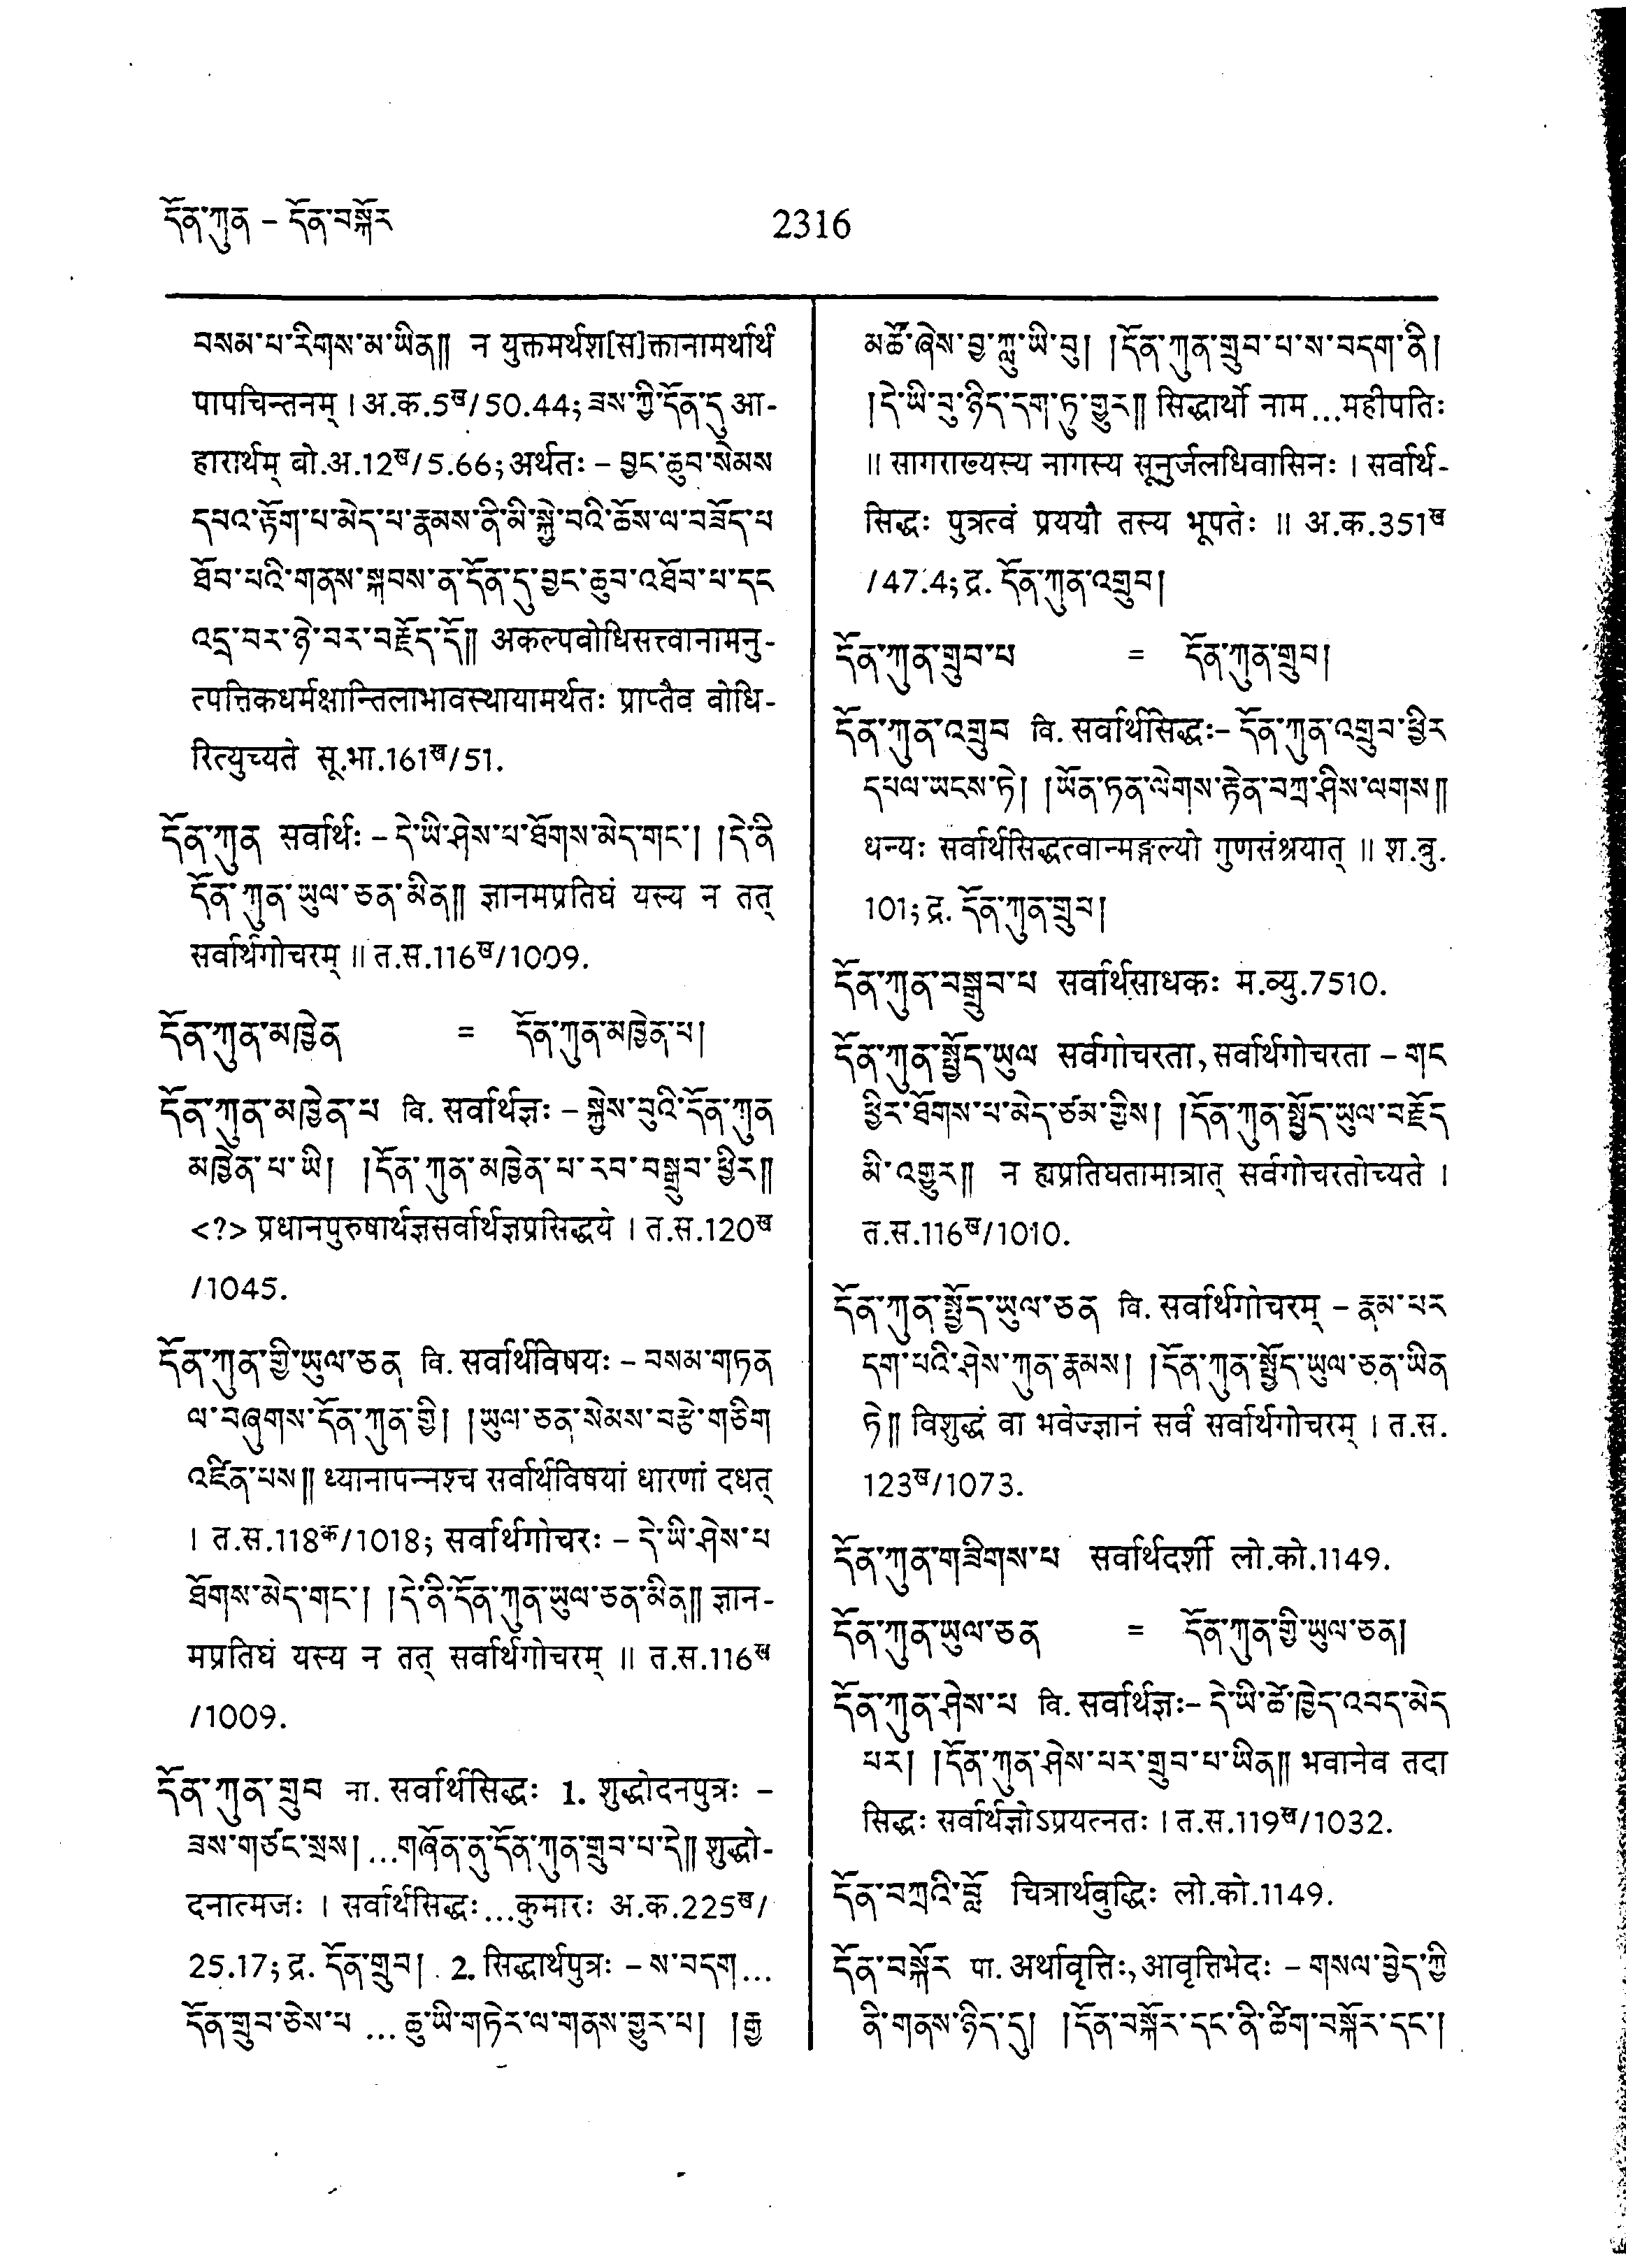 དོན་ཀུན – དོན་བསྐོར
2316
བསམ་པ་རིགས་མ་ཡིན༎ न युक्तमर्थश[स]क्तानामर्थार्थं
पापचिन्तनम् । अ.क.5ख/50.44; ཟས་ཀྱི་དོན་དུ आ-
हारार्थम् बो.अ.12ख/5.66; अर्थतः – བྱང་ཆུབ་སེམས
དཔའ་རྟོག་པ་མེད་པ་རྣམས་ནི་མི་སྐྱེ་བའི་ཆོས་ལ་བཟོད་པ
ཐོབ་པའི་གནས་སྐབས་ན་དོན་དུ་བྱང་ཆུབ་འཐོབ་པ་དང
འདྲ་བར་ཉེ་བར་བརྗོད་དོ༎ अकल्पबोधिसत्त्वानामनु-
त्पत्तिकधर्मक्षान्तिलाभावस्थायामर्थतः प्राप्तैव बोधि-
रित्युच्यते सू.भा.161ख/51.
དོན་ཀུན सर्वार्थः – དེ་ཡི་ཤེས་པ་ཐོགས་མེད་གང་། །དེ་ནི
དོན་ཀུན་ཡུལ་ཅན་མིན༎ ज्ञानमप्रतिघं यस्य न तत्
सर्वार्थगोचरम् ॥ त.स.116ख/1009.
དོན་ཀུན་མཁྱེན = དོན་ཀུན་མཁྱེན་པ།
དོན་ཀུན་མཁྱེན་པ वि. सर्वार्थज्ञः – སྐྱེས་བུའི་དོན་ཀུན
མཁྱེན་པ་ཡི། །དོན་ཀུན་མཁྱེན་པ་རབ་བསྒྲུབ་ཕྱིར༎
<?> प्रधानपुरुषार्थज्ञसर्वार्थज्ञप्रसिद्धये । त.स.120ख
/1045.
དོན་ཀུན་གྱི་ཡུལ་ཅན वि. सर्वार्थविषयः – བསམ་གཏན
ལ་བཞུགས་དོན་ཀུན་གྱི། །ཡུལ་ཅན་སེམས་བརྩེ་གཅིག
འཛིན་པས༎ ध्यानापन्नश्च सर्वार्थविषयां धारणां दधत्
। त.स.118क/1018; सर्वार्थगोचरः – དེ་ཡི་ཤེས་པ
ཐོགས་མེད་གང་། །དེ་ནི་དོན་ཀུན་ཡུལ་ཅན་མིན༎ ज्ञान-
मप्रतिघं यस्य न तत् सर्वार्थगोचरम् ॥ त.स.116ख
/1009.
དོན་ཀུན་གྲུབ ना. सर्वार्थसिद्धः 1. शुद्धोदनपुत्रः –
ཟས་གཙང་སྲས། ...གཞོན་ནུ་དོན་ཀུན་གྲུབ་པ་དེ༎ शुद्धो-
दनात्मजः । सर्वार्थसिद्धः...कुमारः अ.क.225ख/
25.17; द्र. དོན་གྲུབ། . 2. सिद्धार्थपुत्रः – ས་བདག...
དོན་གྲུབ་ཅེས་པ ... ཆུ་ཡི་གཏེར་ལ་གནས་གྱུར་པ། །རྒྱ
མཚོ་ཞེས་བྱ་ཀླུ་ཡི་བུ། །དོན་ཀུན་གྲུབ་པ་ས་བདག་ནི།
།དེ་ཡི་བུ་ཉིད་དག་ཏུ་གྱུར༎ सिद्धार्थो नाम...महीपतिः
॥ सागराख्यस्य नागस्य सूनुर्जलधिवासिनः । सर्वार्थ-
सिद्धः पुत्रत्वं प्रययौ तस्य भूपतेः ॥ अ.क.351ख
/47.4; द्र. དོན་ཀུན་འགྲུབ།
དོན་ཀུན་གྲུབ་པ = དོན་ཀུན་གྲུབ།
དོན་ཀུན་འགྲུབ वि. सर्वार्थसिद्धः– དོན་ཀུན་འགྲུབ་ཕྱིར
དཔལ་ཡངས་ཏེ། །ཡོན་ཏན་ལེགས་རྟེན་བཀྲ་ཤིས་ལགས༎
धन्यः सर्वार्थसिद्धत्वान्मङ्गल्यो गुणसंश्रयात् ॥ श.बु.
101; द्र. དོན་ཀུན་གྲུབ།
དོན་ཀུན་བསྒྲུབ་པ सर्वार्थसाधकः म.व्यु.7510.
དོན་ཀུན་སྤྱོད་ཡུལ सर्वगोचरता, सर्वार्थगोचरता – གང
ཕྱིར་ཐོགས་པ་མེད་ཙམ་གྱིས། །དོན་ཀུན་སྤྱོད་ཡུལ་བརྗོད
མི་འགྱུར༎ न ह्यप्रतिघतामात्रात् सर्वगोचरतोच्यते ।
त.स.116ख/1010.
དོན་ཀུན་སྤྱོད་ཡུལ་ཅན वि. सर्वार्थगोचरम् – རྣམ་པར
དག་པའི་ཤེས་ཀུན་རྣམས། །དོན་ཀུན་སྤྱོད་ཡུལ་ཅན་ཡིན
ཏེ༎ विशुद्धं वा भवेज्ज्ञानं सर्वं सर्वार्थगोचरम् । त.स.
123ख/1073.
དོན་ཀུན་གཟིགས་པ सर्वार्थदर्शी लो.को.1149.
དོན་ཀུན་ཡུལ་ཅན = དོན་ཀུན་གྱི་ཡུལ་ཅན།
དོན་ཀུན་ཤེས་པ वि. सर्वार्थज्ञः– དེ་ཡི་ཚེ་ཁྱེད་འབད་མེད
པར། །དོན་ཀུན་ཤེས་པར་གྲུབ་པ་ཡིན༎ भवानेव तदा
सिद्धः सर्वार्थज्ञोऽप्रयत्नतः । त.स.119ख/1032.
དོན་བཀྲའི་བློ चित्रार्थबुद्धिः लो.को.1149.
དོན་བསྐོར पा. अर्थावृत्तिः, आवृत्तिभेदः – གསལ་བྱེད་ཀྱི
ནི་གནས་ཉིད་དུ། །དོན་བསྐོར་དང་ནི་ཚིག་བསྐོར་དང་།